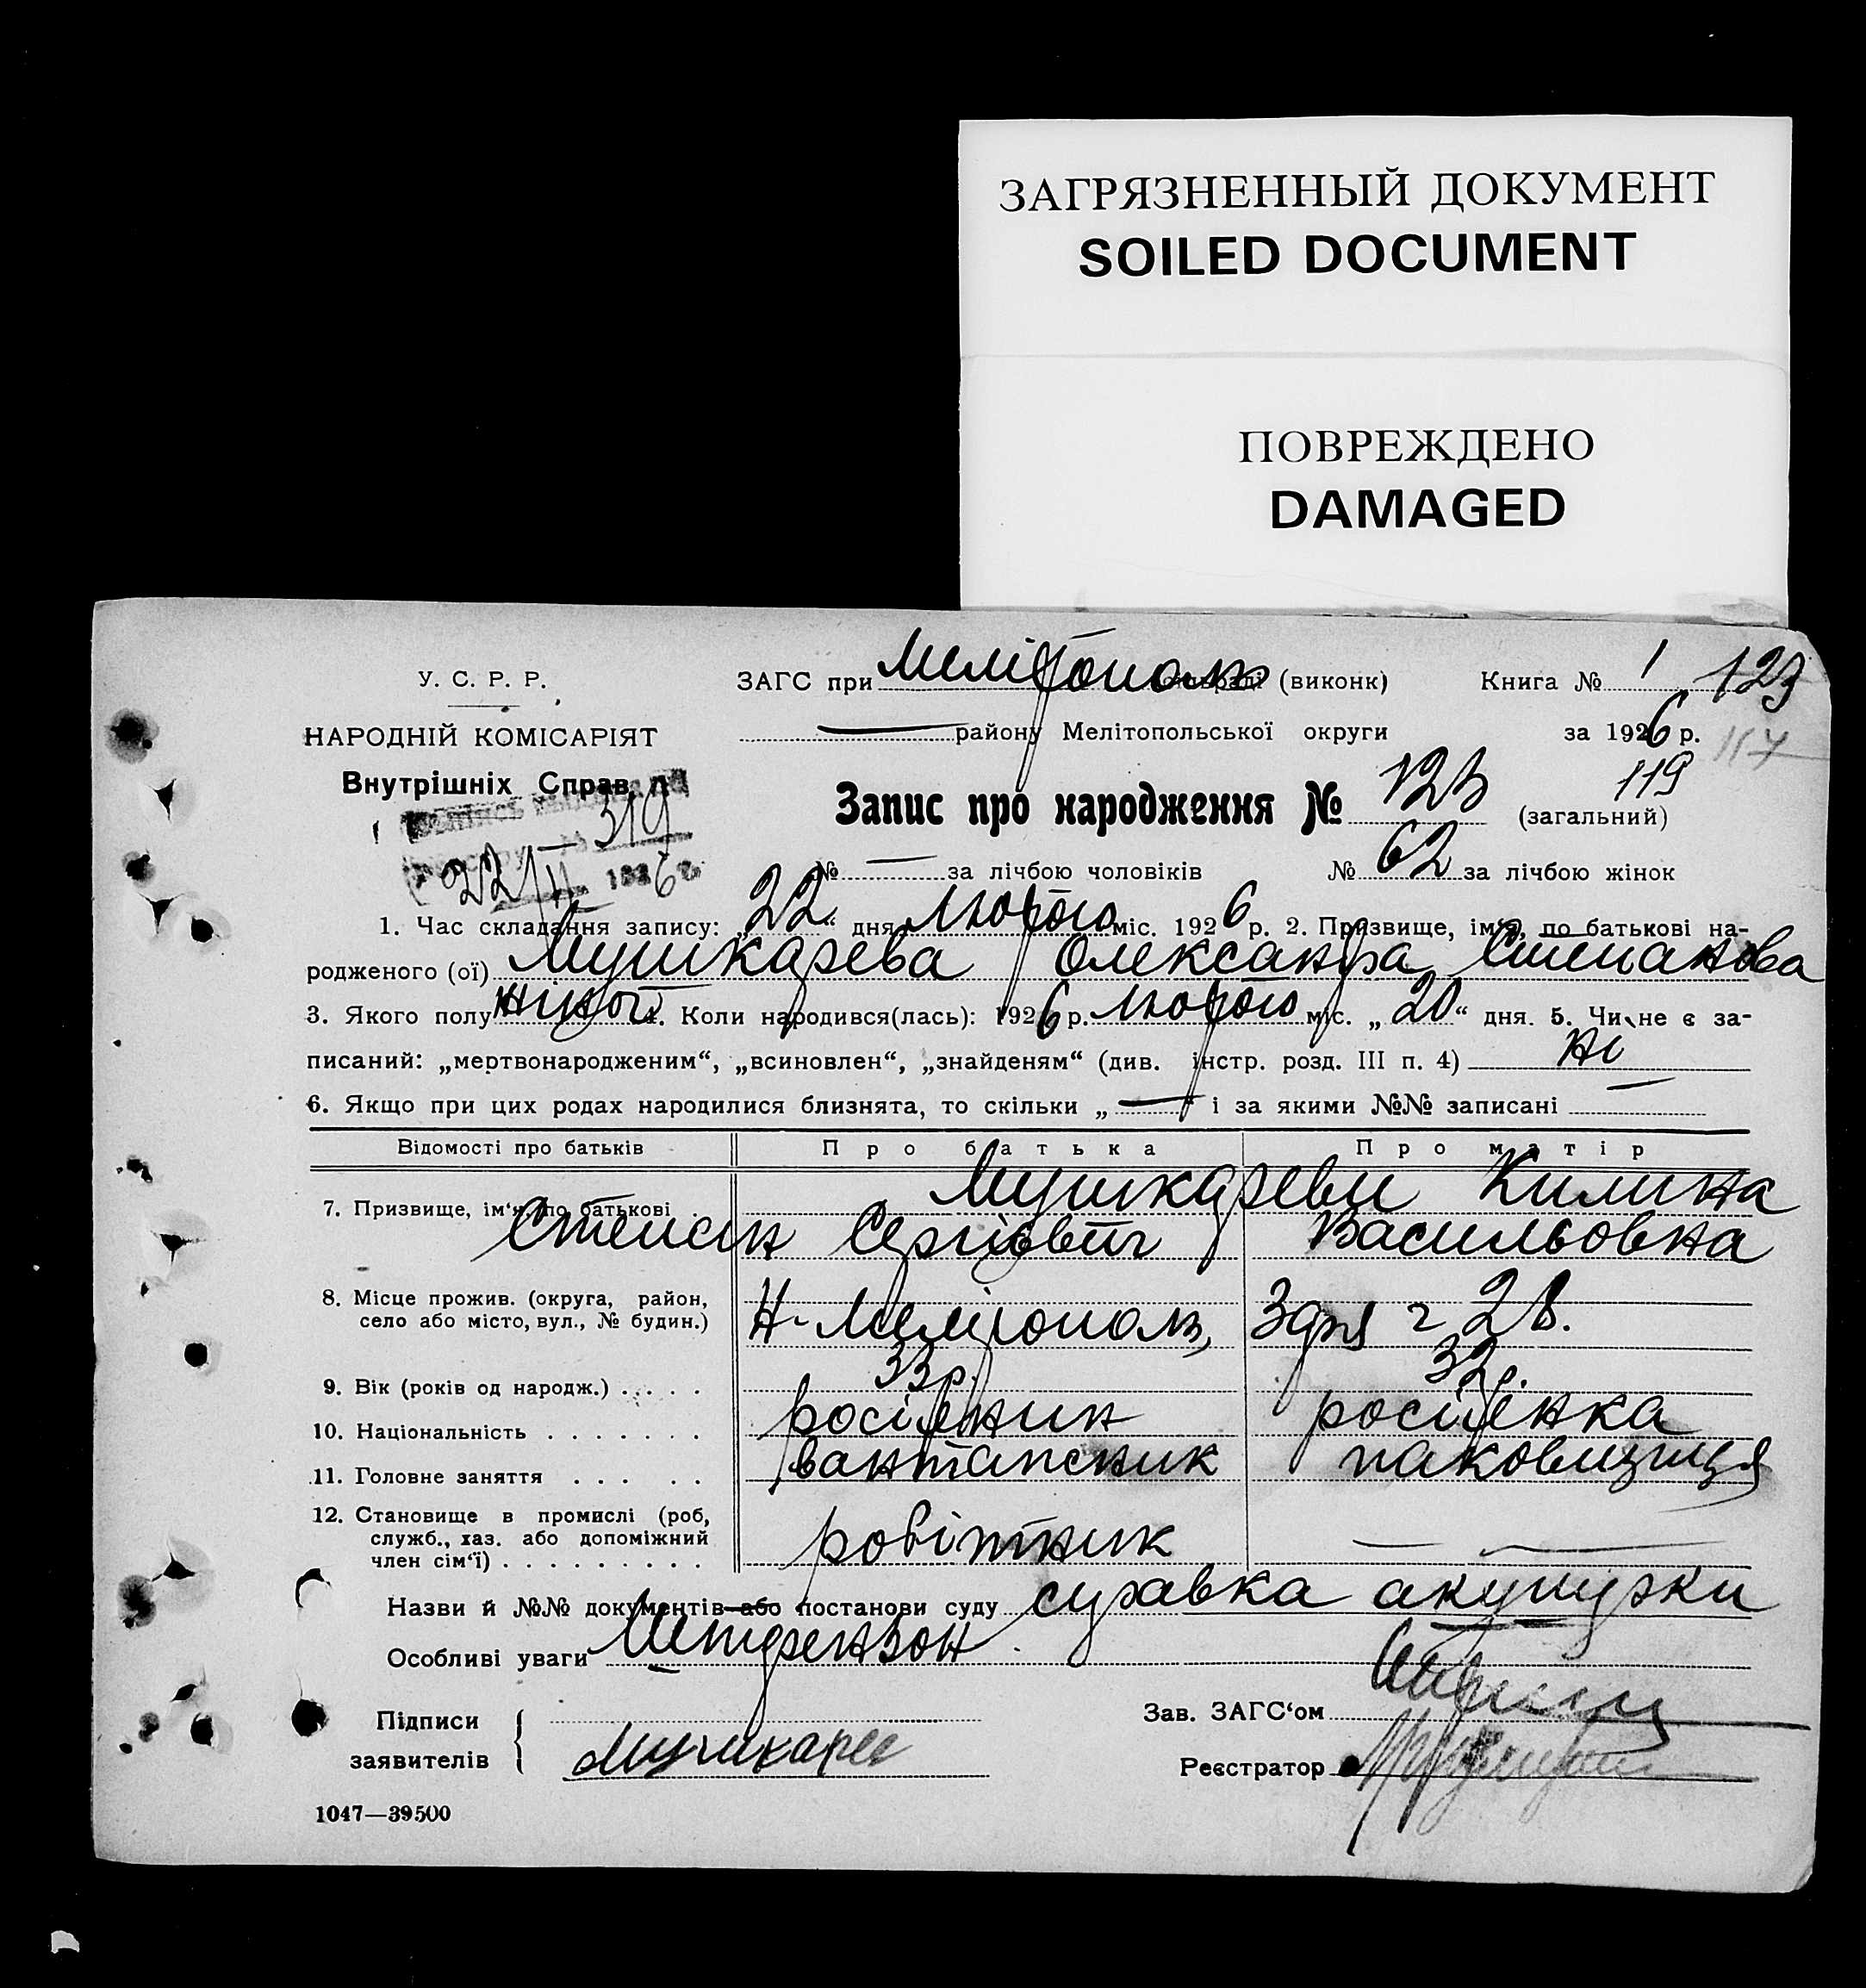 ЗАГРЯЗНЕННЫЙ ДОКУМЕНТ
SOILED DOCUMENT
ПОВРЕЖДЕНО
DAMAGED
У. С. Р. Р.
НАРОДНІЙ КОМІСАРІЯТ
Внутрішніх Справ
319
22/II 1926 г.
ЗАГС при Мелітополь (виконк) Книга № 1 123
— району Мелітопольської округи за 1926 р. 117
Запис про народження № 123 (загальний) 119
№ — за лічбою чоловіків № 62 за лічбою жінок
1. Час складання запису: „22“ дня Лютого міс. 1926 р. 2. Призвище, ім'я, по батькові на-
родженого (ої) Мушкарева Олександра Степанова
3. Якого полу жіноч. 4. Коли народився(лась): 1926 р. Лютого міс. „20“ дня. 5. Чи не є за-
писаний: „мертвонародженим“, „всиновлен“, „знайденям“ (див. інстр. розд. III п. 4) ні
6. Якщо при цих родах народилися близнята, то скільки „—“ і за якими №№ записані —
Відомості про батьків Про батька Про матір
7. Призвище, ім‘я, по батькові . Мушкареви Килина
Степан Сергієвіч Васильовна
8. Місце прожив. (округа, район,
село або місто, вул., № будин.) Н-Мелітополь, 28.
9. Вік (років од народж.) . . . . 33 р. 32 р.
10. Національність . . . . . . . росіянин росіянка
11. Головне заняття . . . . . вантажник паковщиця
12. Становище в промислі (роб,
служб., хаз. або допоміжний
член сім‘ї) . . . . . . . . . робітник —
Назви й №№ документів або постанови суду справка акушерки
Особливі уваги Штеренззон
Підписи
заявителів
Мушкарев
Зав. ЗАГС‘ом
Реєстратор
1047—39500